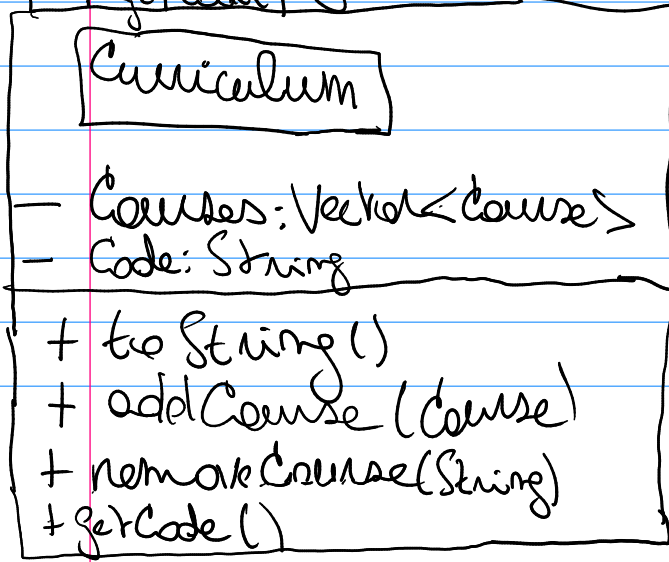 Curriculum
- Courses: Vector<Course>
- Code: String
+ toString()
+ addCourse (Course)
+ removeCourse(String)
+ getCode()